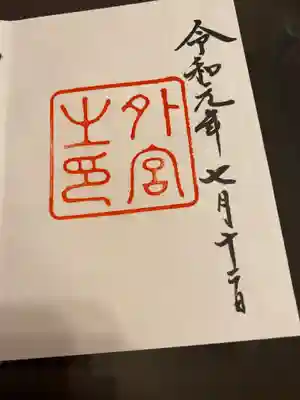 令和元年七月十二日
外宮
之印